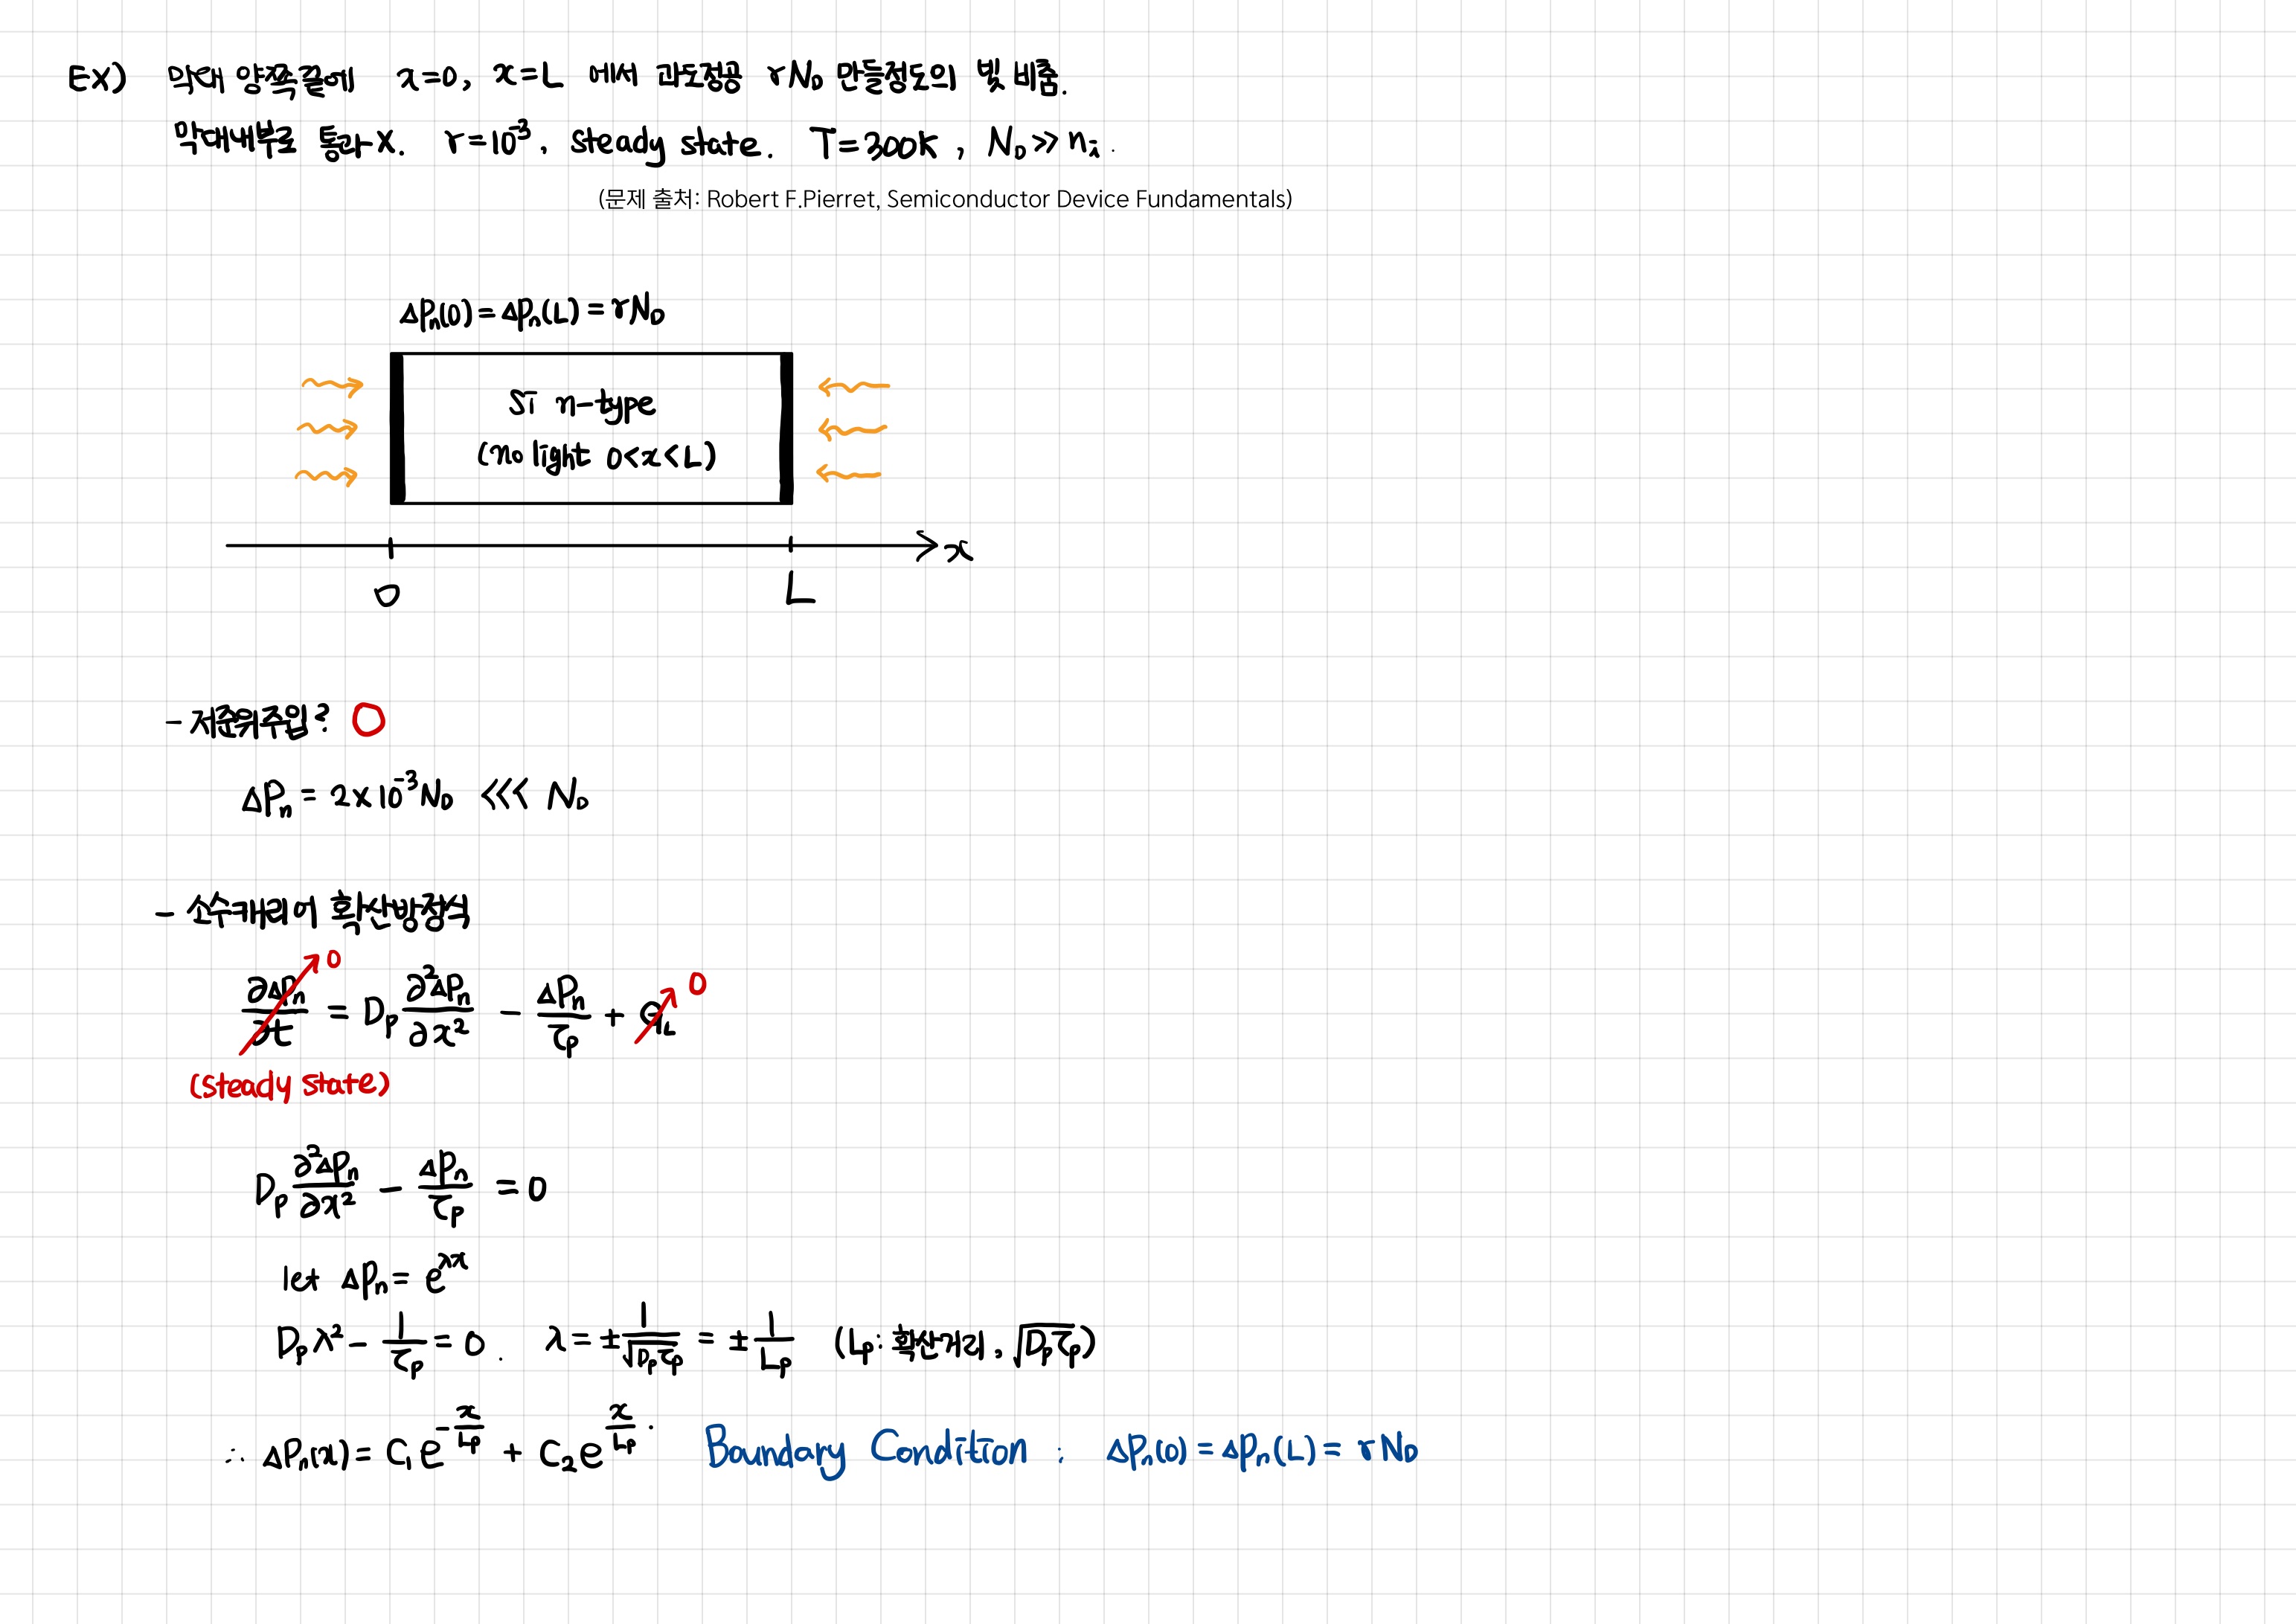 EX) 막대 양쪽끝에 x=0, x=L 에서 과도정공 rN_D 만들정도의 빛 비춤.
막대내부로 통과 X. r=10⁻³, steady state. T=300K, N_D ≫ n_i.
(문제 출처: Robert F.Pierret, Semiconductor Device Fundamentals)
ΔP_n(0)=ΔP_n(L)=rN_D
Si n-type
(no light 0<x<L)
x
0 L
- 저준위주입? O
ΔP_n = 2×10⁻³N_D <<< N_D
- 소수캐리어 확산방정식
∂ΔP_n/∂t = D_p ∂²ΔP_n/∂x² - ΔP_n/τ_p + g_L
0 0
(steady state)
D_p ∂²ΔP_n/∂x² - ΔP_n/τ_p = 0
let ΔP_n = e^λx
D_p λ² - 1/τ_p = 0. λ = ±1/√(D_p τ_p) = ±1/L_p (L_p: 확산거리, √(D_p τ_p))
∴ ΔP_n(x) = C₁e^(-x/L_p) + C₂e^(x/L_p). Boundary Condition : ΔP_n(0) = ΔP_n(L) = rN_D